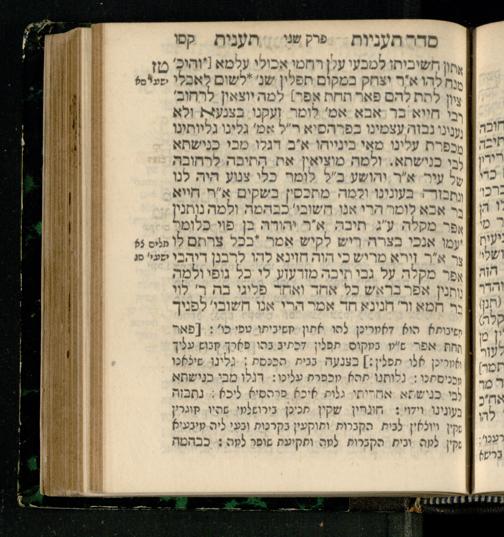 סדר תעניות פרק שני תענית קסו
אתון חשיביתו למבעי עלן רחמי אכולי עלמא [והיכ'
מנח להו א"ר יצחק במקום תפלין שנ' לשום לאבלי
ציון לתת להם פאר תחת אפר] למה יוצאין לרחוב'
רבי חייא בר אבא אמ' לומר זעקנו בצנעא ולא
נענינו נבזה עצמינו בפרהסיא ר"ל אמ' גלינו גליותינו
מכפרת עלינו מאי בינייהו א"ב דגלו מבי כנישתא
לבי כנישתא. ולמה מוציאין את התיבה לרחובה
של עיר א"ר יהושע ב"ל לומר כלי צנוע היה לנו
ונתבזה בעונינו ולמה מתכסין בשקים א"ר חייא
בר אבא לומר הרי אנו חשובי' כבהמה ולמה נותנין
אפר מקלה ע"ג תיבה א"ר יהודה בן פזי כלומר
עמו אנכי בצרה ריש לקיש אמר בכל צרתם לו
צר א"ר זירא מריש כי הוה חזינא להו לרבנן דיהבי
אפר מקלה על גבי תיבה מזדעזע לי כל גופי ולמה
נותנין אפר בראש כל אחד ואחד פליגי בה ר' לוי
בר חמא ור' חנינא חד אמר הרי אנו חשובי' לפניך
טז
ישעי' סא
תלים צא
ישעי' סג
חשיבותא הוא דאמרינן להו אתון חשיביתו טפי כו': [פאר
תחת אפר ש"מ במקום תפלין דכתיב בהו פארך חבוש עליך
ואמרינן אלו תפלין:] בצנעה בבית הכנסת: גלינו שיצאנו
מכניסתנו: גלותנו תהא מכפרת עלינו: דגלו מבי כנישתא
לבי כנישתא אחריתי גלות איכא פרהסיא ליכא: נתבזה
בעונינו
שקין ויוצאין לבית הקברות ותוקעין בקרנות ובעי ליה מיבעיא
שקין למה ובית הקברות למה ותקיעת שופר למה: כבהמה